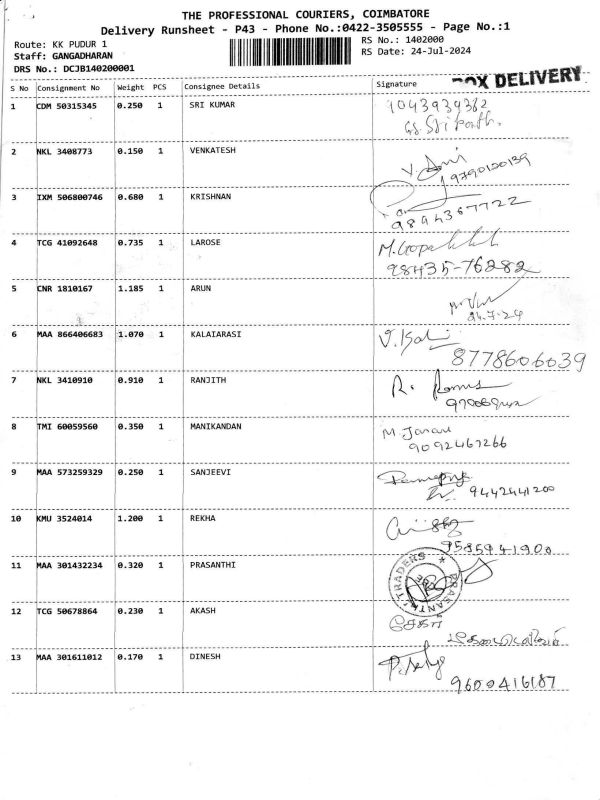 THE PROFESSIONAL COURIERS, COIMBATORE
Delivery Runsheet - P43 - Phone No.:0422-3505555 - Page No.:1
Route: KK PUDUR 1
RS No.: 1402000
Staff: GANGADHARAN
RS Date: 24-Jul-2024
DRS No.: DCJB140200001
S No Consignment No Weight PCS Consignee Details Signature
BOX DELIVERY
1 CDM 50315345 0.250 1 SRI KUMAR 9043939382
2 NKL 3408773 0.150 1 VENKATESH
9790120139
3 IXM 506800746 0.680 1 KRISHNAN
9894367722
4 TCG 41092648 0.735 1 LAROSE
98435-76282
5 CNR 1810167 1.185 1 ARUN
24.7.24
6 MAA 866406683 1.070 1 KALAIARASI
8778606039
7 NKL 3410910 0.910 1 RANJITH
8 TMI 60059560 0.350 1 MANIKANDAN
9092467266
9 MAA 573259329 0.250 1 SANJEEVI
9442441200
10 KMU 3524014 1.200 1 REKHA
9585941900
11 MAA 301432234 0.320 1 PRASANTHI
PRASANTHI TRADERS
12 TCG 50678864 0.230 1 AKASH
13 MAA 301611012 0.170 1 DINESH
9600416187